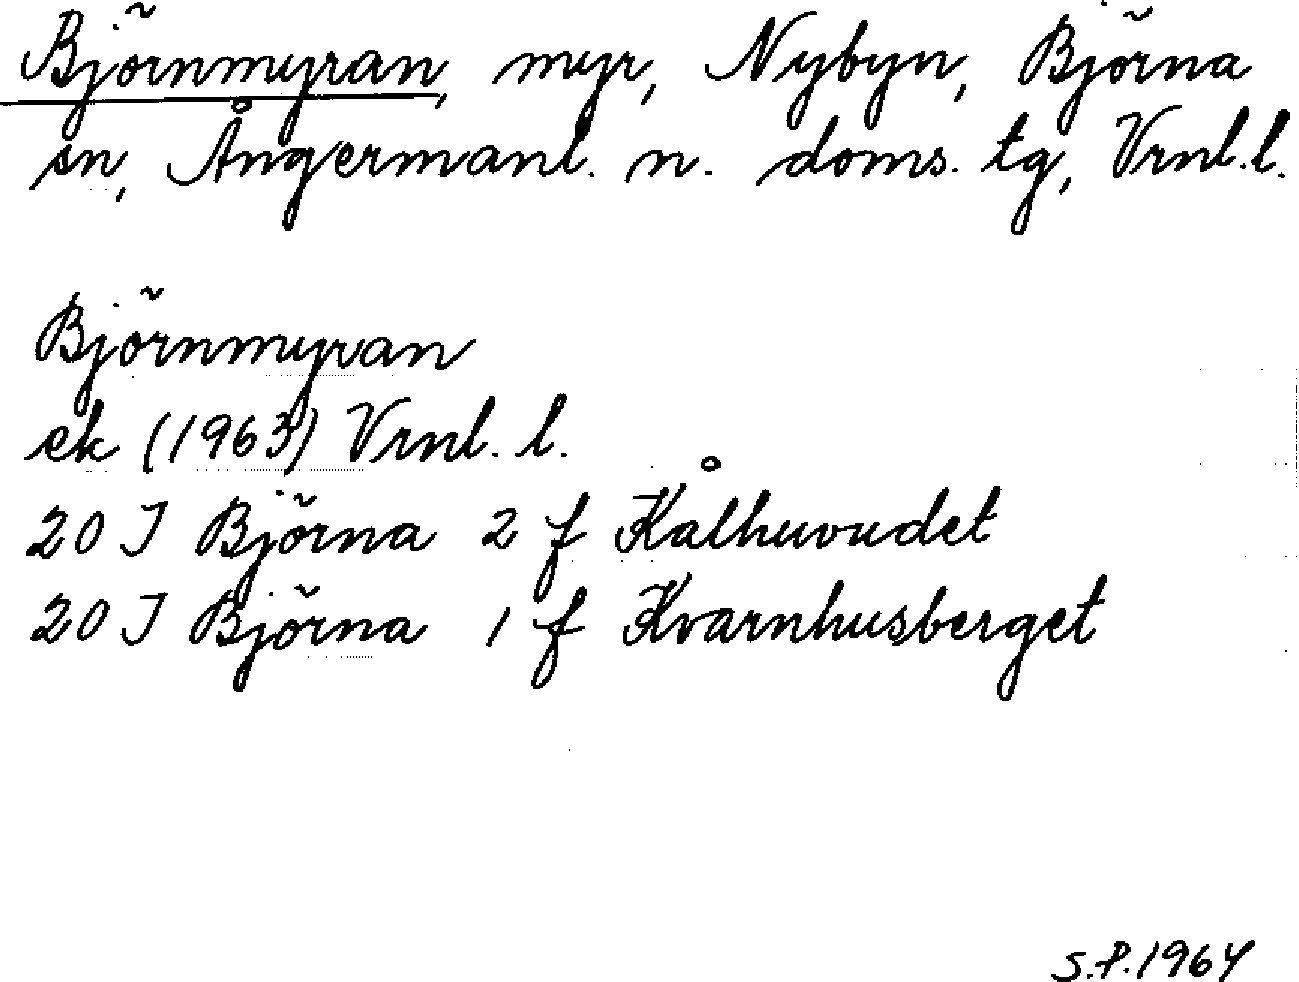 Björnmyran, myr, Nybyn, Björna
sn, Ångermanl. n. doms. tg, Vrnl.l.
Björnmyran
ek (1963) Vrnl. l.
20 J Björna 2 f Kålhuvudet
20 J Björna 1 f Kvarnhusberget
S.P. 1964